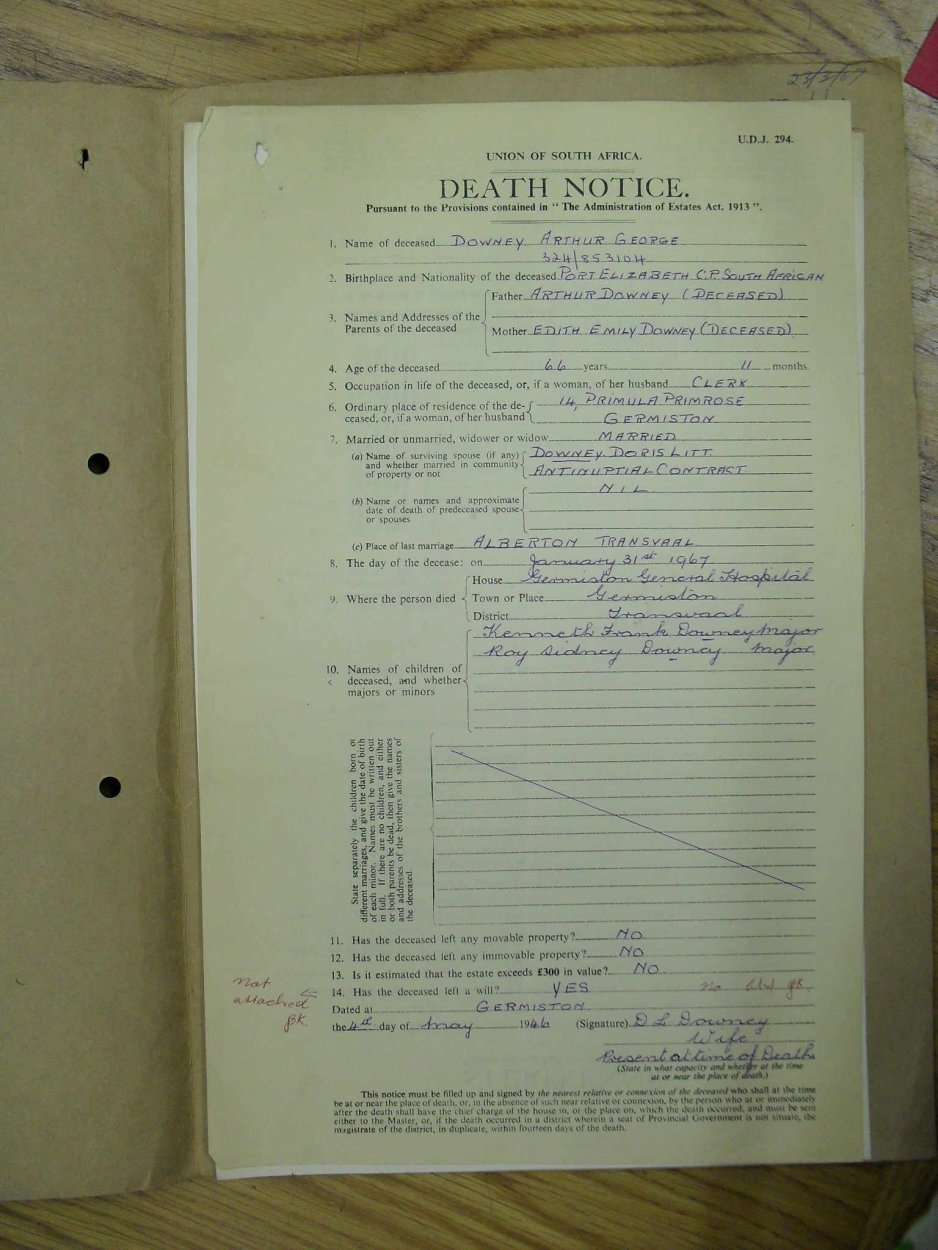 U.D.J. 294.
UNION OF SOUTH AFRICA.
DEATH NOTICE.
Pursuant to the Provisions contained in “ The Administration of Estates Act. 1913 ”.
1. Name of deceased DOWNEY ARTHUR GEORGE
324/853104
2. Birthplace and Nationality of the deceased PORT ELIZABETH C.P. SOUTH AFRICAN
3. Names and Addresses of the Parents of the deceased
Father ARTHUR DOWNEY (DECEASED)
Mother EDITH EMILY DOWNEY (DECEASED)
4. Age of the deceased 66 years 11 months
5. Occupation in life of the deceased, or, if a woman, of her husband CLERK
6. Ordinary place of residence of the de- 14, PRIMULA PRIMROSE
ceased, or, if a woman, of her husband GERMISTON
7. Married or unmarried, widower or widow MARRIED
(a) Name of surviving spouse (if any) DOWNEY DORIS LITT
and whether married in community ANTINUPTIAL CONTRACT
of property or not
(b) Name or names and approximate NIL
date of death of predeceased spouse
or spouses
(c) Place of last marriage ALBERTON TRANSVAAL
8. The day of the decease: on January 31st 1967
9. Where the person died
House Germiston General Hospital
Town or Place Germiston
District Transvaal
10. Names of children of
deceased, and whether
majors or minors
Kenneth Frank Downey Major
Roy Sidney Downey Major
State separately the children born of
different marriages, and give the date of birth
of each minor. Names must be written out
in full. If there are no children, and either
or both parents be dead, then give the names
and addresses of the brothers and sisters of
the deceased.
11. Has the deceased left any movable property? NO
12. Has the deceased left any immovable property? NO
13. Is it estimated that the estate exceeds £300 in value? NO
14. Has the deceased left a will? YES
not
attached
Dated at GERMISTON
the 4th day of May 1946 (Signature) D L Downey
Wife
Present at time of Death
(State in what capacity and whether at the time
at or near the place of death.)
This notice must be filled up and signed by the nearest relative or connexion of the deceased who shall at the time
be at or near the place of death, or, in the absence of such near relative or connexion, by the person who at or immediately
after the death shall have the chief charge of the house in, or the place on, which the death occurred, and must be sent
either to the Master, or, if the death occurred in a district wherein a seat of Provincial Government is not situate, the
magistrate of the district, in duplicate, within fourteen days of the death.